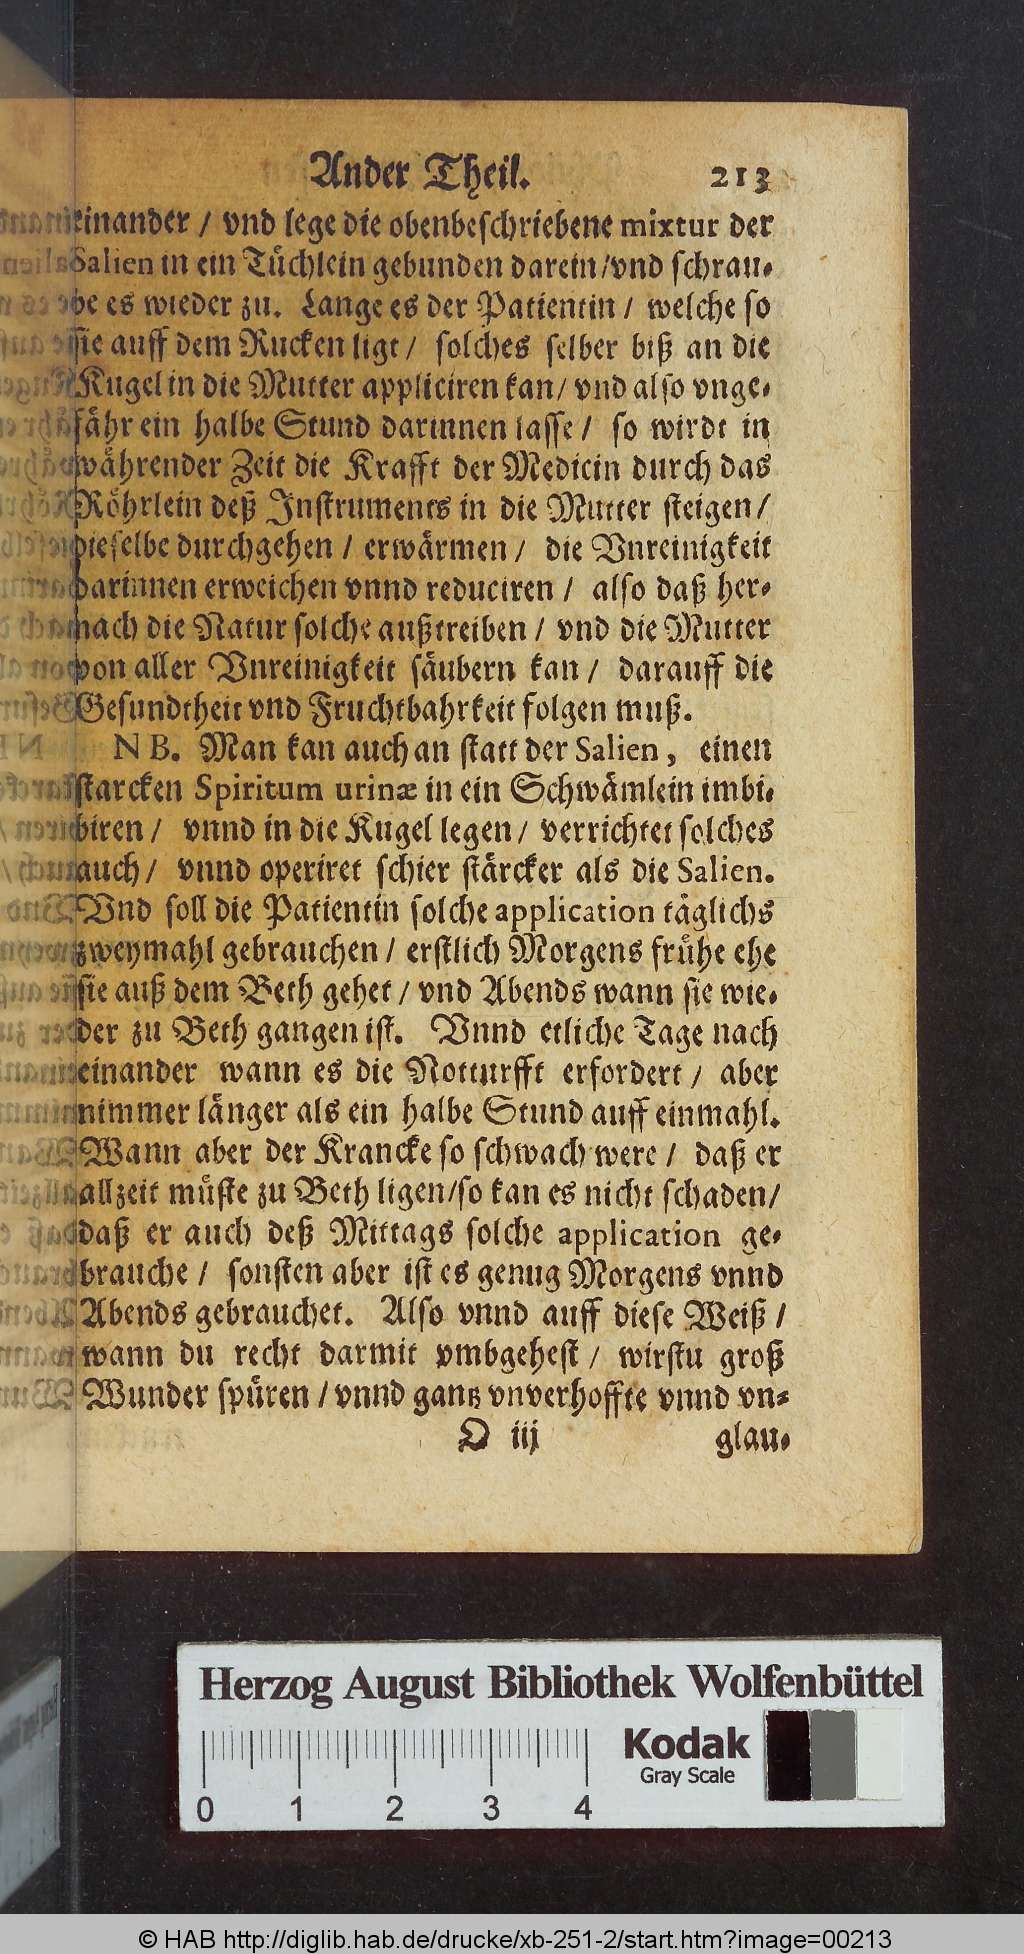 Ander Theil. 213
einander / vnd lege die obenbeschriebene mixtur der
Salien in ein Tüchlein gebunden darein/vnd schrau-
be es wieder zu. Lange es der Patientin / welche so
sie auff dem Rucken ligt / solches selber biß an die
Kugel in die Mutter appliciren kan/ vnd also vnge-
fähr ein halbe Stund darinnen lasse / so wirdt in
währender Zeit die Krafft der Medicin durch das
Röhrlein deß Instruments in die Mutter steigen /
dieselbe durchgehen / erwärmen / die Vnreinigkeit
darinnen erweichen vnnd reduciren / also daß her-
nach die Natur solche außtreiben / vnd die Mutter
von aller Vnreinigkeit säubern kan / darauff die
Gesundtheit vnd Fruchtbahrkeit folgen muß.
NB. Man kan auch an statt der Salien, einen
starcken Spiritum urinæ in ein Schwämlein imbi-
biren / vnnd in die Kugel legen / verrichtet solches
auch / vnnd operiret schier stärcker als die Salien.
Vnd soll die Patientin solche application täglichs
zweymahl gebrauchen / erstlich Morgens frühe ehe
sie auß dem Beth gehet / vnd Abends wann sie wie-
der zu Beth gangen ist. Vnnd etliche Tage nach
einander wann es die Notturfft erfordert / aber
nimmer länger als ein halbe Stund auff einmahl.
Wann aber der Krancke so schwach were / daß er
allzeit müste zu Beth ligen/so kan es nicht schaden/
daß er auch deß Mittags solche application ge-
brauche / sonsten aber ist es genug Morgens vnnd
Abends gebrauchet. Also vnnd auff diese Weiß /
wann du recht darmit vmbgehest / wirstu groß
Wunder spüren / vnnd gantz vnverhoffte vnnd vn-
O iij glau-
Herzog August Bibliothek Wolfenbüttel
Kodak
Gray Scale
0 1 2 3 4
© HAB http://diglib.hab.de/drucke/xb-251-2/start.htm?image=00213